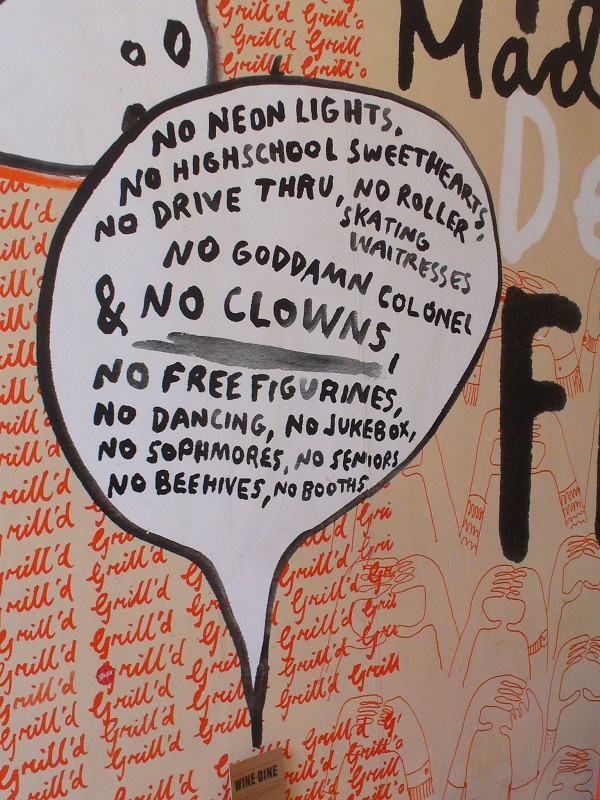 Grill'd Grill'd
Grill'd Grill'd
Grill'd Grill'd
Mad
De
F
NO NEON LIGHTS,
NO HIGHSCHOOL SWEETHEARTS,
NO DRIVE THRU, NO ROLLER
SKATING
WAITRESSES
NO GODDAMN COLONEL
& NO CLOWNS,
NO FREE FIGURINES,
NO DANCING, NO JUKEBOX,
NO SOPHMORES, NO SENIORS
NO BEEHIVES, NO BOOTHS
Grill'd Grill'd Grill'd
Grill'd Grill'd Grill'd
Grill'd Grill'd Grill'd
WINE & DINE